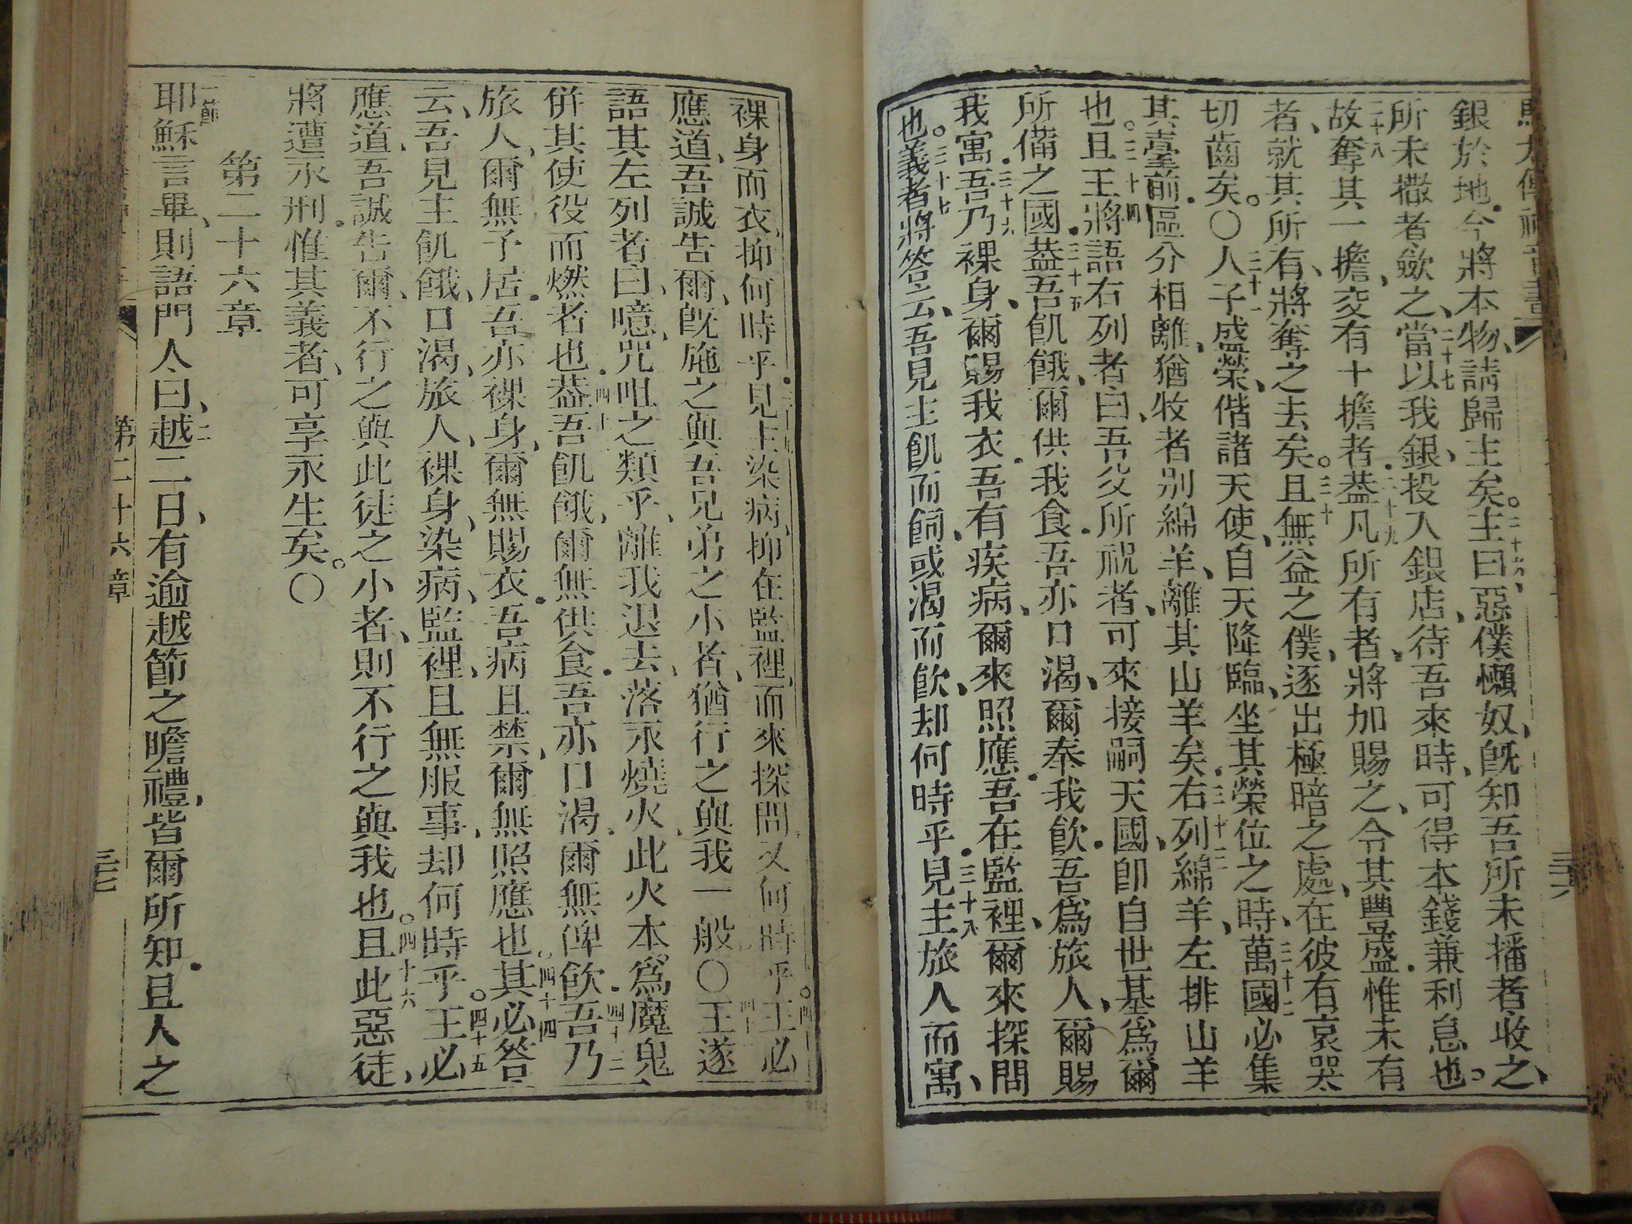 馬太傳福音書
銀於地今將本物請歸主矣主曰惡僕懶奴旣知吾所未播者收之
所未撒者斂之當以我銀投入銀店待吾來時可得本錢兼利息也
故奪其一擔交有十擔者葢凡所有者將加賜之令其豐盛惟未有
者就其所有將奪之去矣且無益之僕逐出極暗之處在彼有哀哭
切齒矣〇人子盛榮偕諸天使自天降臨坐其榮位之時萬國必集
其臺前區分相離猶牧者別綿羊離其山羊矣右列綿羊左排山羊
也且王將語右列者曰吾父所祝者可來接嗣天國卽自世基爲爾
所備之國葢吾飢餓爾供我食吾亦口渴爾奉我飮吾爲旅人爾賜
我寓吾乃裸身爾賜我衣吾有疾病爾來照應吾在監裡爾來探問
也義者將答云吾見主飢而飼或渴而飮却何時乎見主旅人而寓
三六
裸身而衣抑何時乎見主染病抑在監裡而來探問又何時乎王必
應道吾誠告爾旣施之與吾兄弟之小者猶行之與我一般〇王遂
語其左列者曰噫咒咀之類乎離我退去落永燒火此火本爲魔鬼
併其使役而燃者也葢吾飢餓爾無供食吾亦口渴爾無俾飮吾乃
旅人爾無予居吾亦裸身爾無賜衣吾病且禁爾無照應也其必答
云吾見主飢餓口渴旅人裸身染病監裡且無服事却何時乎王必
應道吾誠告爾不行之與此徒之小者則不行之與我也且此惡徒
將遭永刑惟其義者可享永生矣〇
第二十六章
耶穌言畢則語門人曰越二日有逾越節之瞻禮皆爾所知且人之
第二十六章
三七